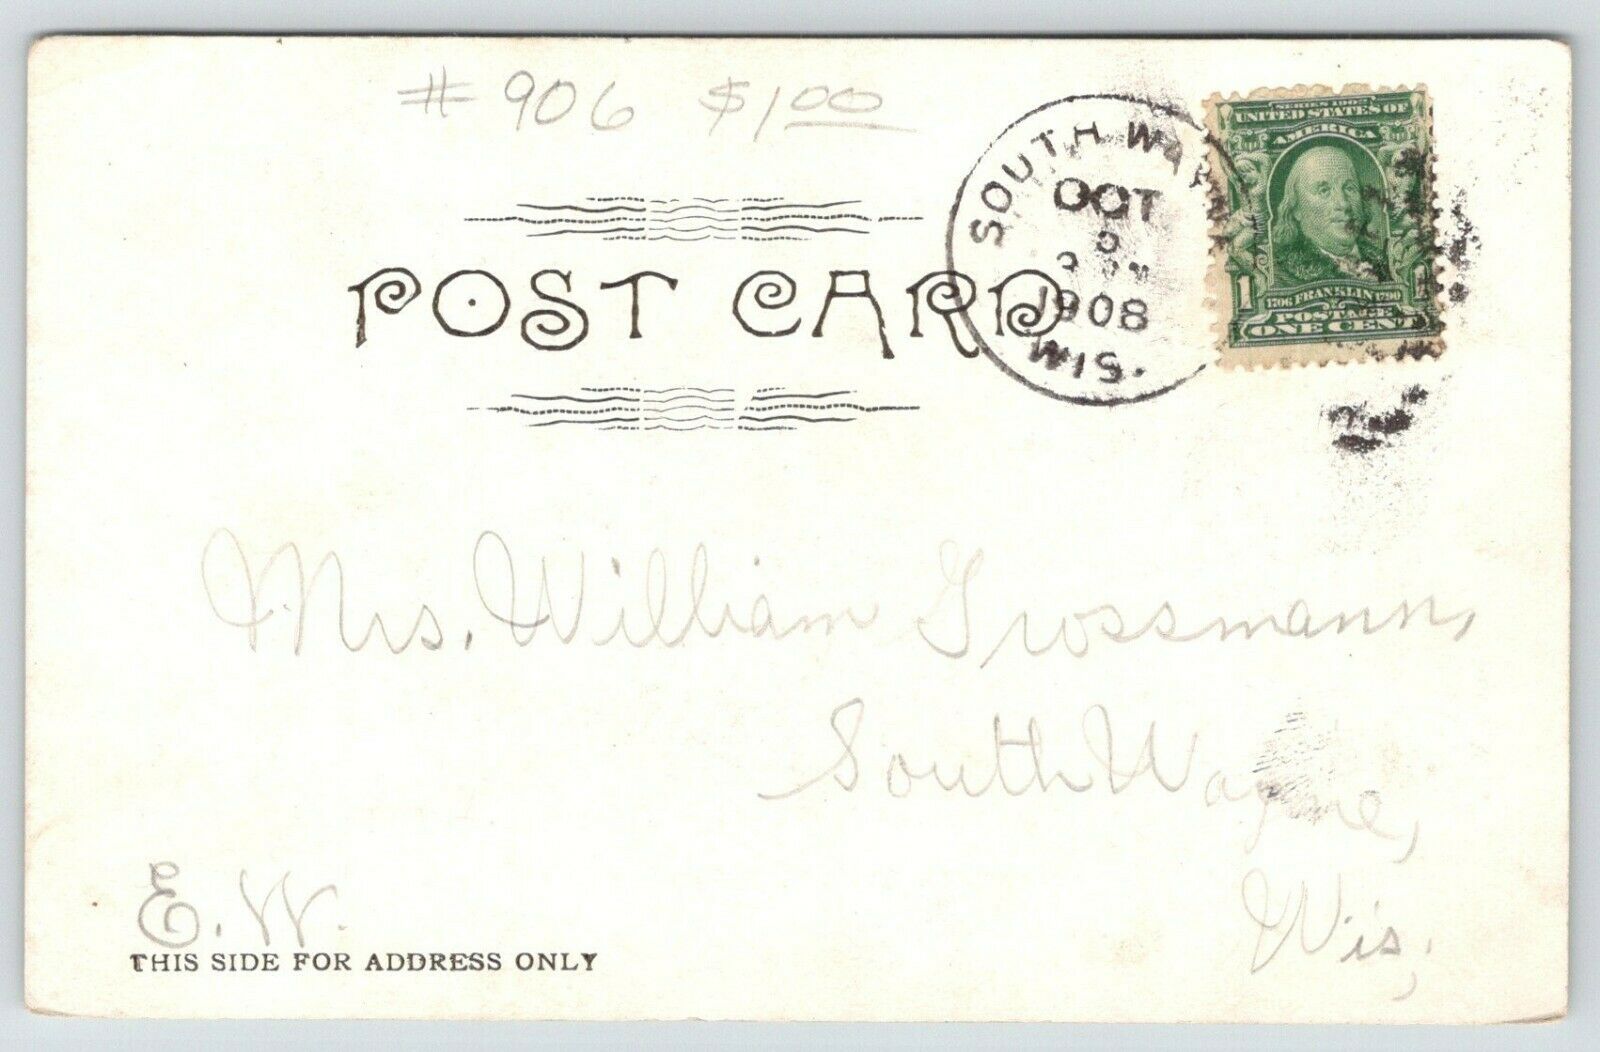 # 906 $1.00
SOUTH WAYN
OCT
1908
WIS.
SERIES 1902
UNITED STATES OF
AMERICA
1 1
1706 FRANKLIN 1790
POSTAGE
ONE CENT
POST CARD
Mrs. William Grossmann,
South Wayne,
Wis.
E. W.
THIS SIDE FOR ADDRESS ONLY